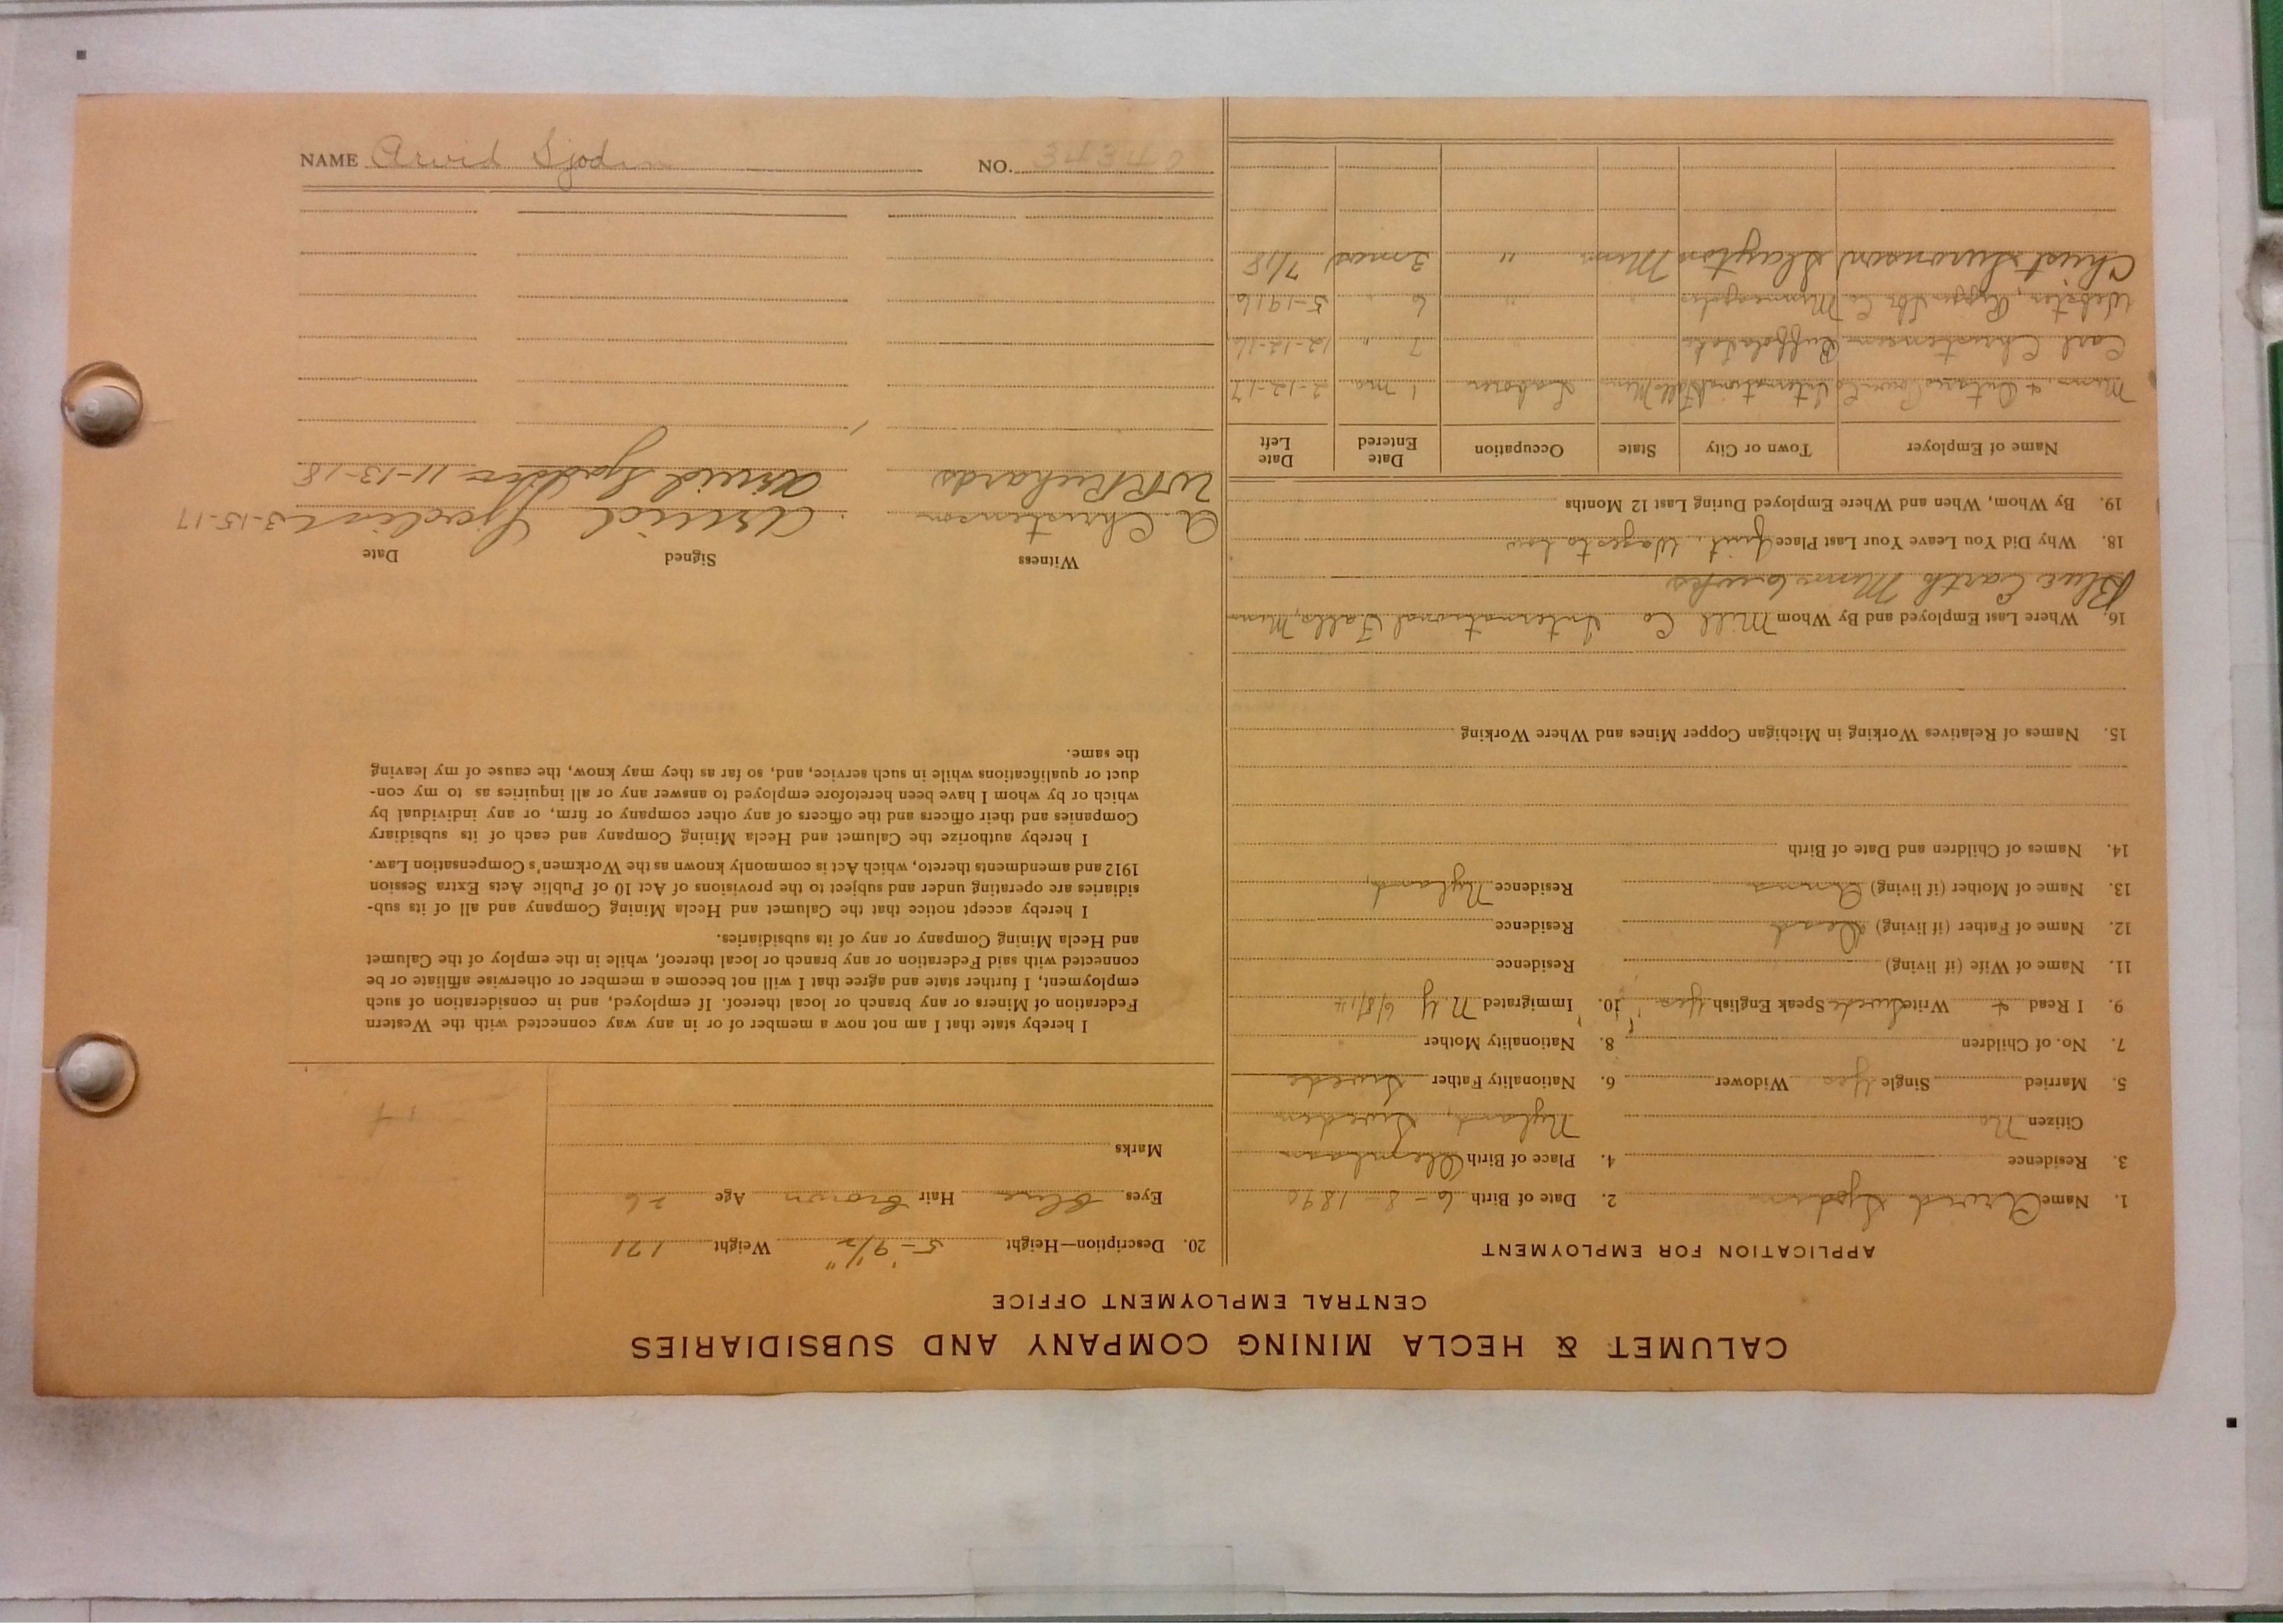 CALUMET & HECLA MINING COMPANY AND SUBSIDIARIES
CENTRAL EMPLOYMENT OFFICE
APPLICATION FOR EMPLOYMENT
1. Name Arvid Sjodin 2. Date of Birth 6-8-1890
3. Residence 4. Place of Birth
Citizen No Nyland, Sweden
5. Married Single Yes Widower 6. Nationality Father Swede
7. No. of Children 8. Nationality Mother
9. I Read & Write Swede Speak English Yes 10. Immigrated N.Y. 6/8/14
11. Name of Wife (if living) Residence
12. Name of Father (if living) Dead Residence
13. Name of Mother (if living) Anna Residence Nyland,
14. Names of Children and Date of Birth
15. Names of Relatives Working in Michigan Copper Mines and Where Working
16. Where Last Employed and By Whom Mill Co International Falls, Minn
Blue Earth Minn 6 wks
18. Why Did You Leave Your Last Place Quit. Wages to low
19. By Whom, When and Where Employed During Last 12 Months
Name of Employer Town or City State Occupation Date Entered Date Left
Minn. & Ontario Power Co International Falls Minn Laborer 1 mo. 2-12-17
Carl Christenson Buffalo Lake " " 7 " 12-12-16
Webster, Minneapolis " " 6 " 5-1916
Christ Swonson Slayton Minn " 3 mos 7/18
20. Description—Height 5-9½" Weight 171
Eyes Blue Hair Brown Age 26
Marks
I hereby state that I am not now a member of or in any way connected with the Western
Federation of Miners or any branch or local thereof. If employed, and in consideration of such
employment, I further state and agree that I will not become a member or otherwise affiliate or be
connected with said Federation or any branch or local thereof, while in the employ of the Calumet
and Hecla Mining Company or any of its subsidiaries.
I hereby accept notice that the Calumet and Hecla Mining Company and all of its sub-
sidiaries are operating under and subject to the provisions of Act 10 of Public Acts Extra Session
1912 and amendments thereto, which Act is commonly known as the Workmen's Compensation Law.
I hereby authorize the Calumet and Hecla Mining Company and each of its subsidiary
Companies and their officers and the officers of any other company or firm, or any individual by
which or by whom I have been heretofore employed to answer any or all inquiries as to my con-
duct or qualifications while in such service, and, so far as they may know, the cause of my leaving
the same.
Witness Signed Date
A Christenson Arvid Sjodin 3-15-17
W R Richards Arvid Sjodin 11-13-18
NAME Arvid Sjodin NO. 34340